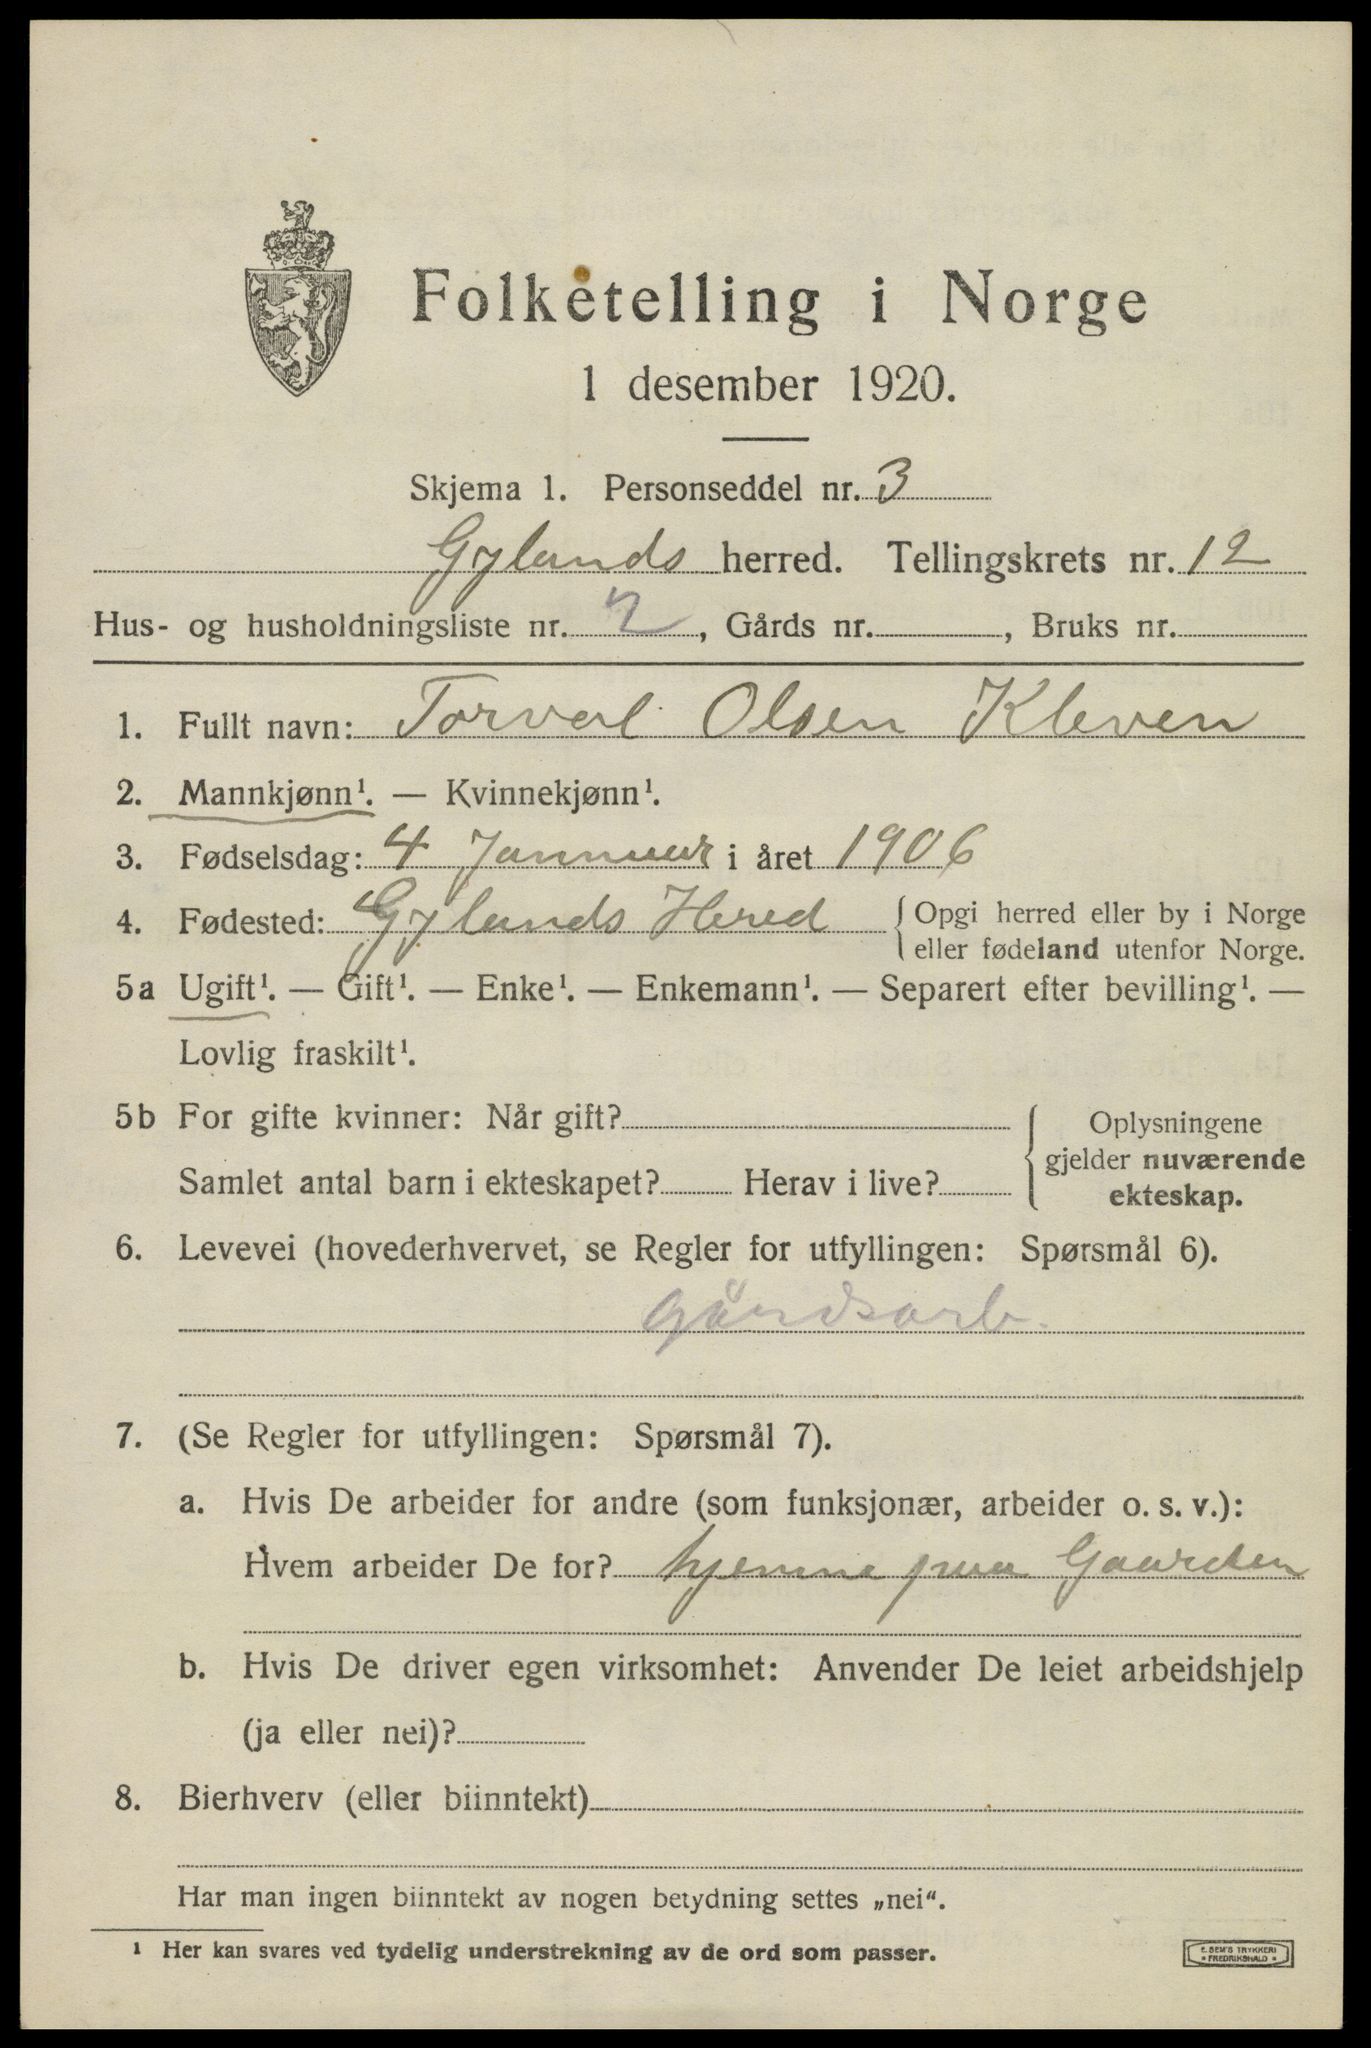 Folketelling i Norge
1 desember 1920.
Skjema 1. Personseddel nr. 3
Gylands herred. Tellingskrets nr. 12
Hus- og husholdningsliste nr. 2, Gårds nr. , Bruks nr.
1. Fullt navn: Torval Olsen Kleven
2. Mannkjønn¹. — Kvinnekjønn¹.
3. Fødselsdag: 4 Januar i året 1906
4. Fødested: Gylands Hered { Opgi herred eller by i Norge
eller fødeland utenfor Norge.
5a Ugift¹. — Gift¹. — Enke¹. — Enkemann¹. — Separert efter bevilling¹. —
Lovlig fraskilt¹.
5b For gifte kvinner: Når gift?
Samlet antal barn i ekteskapet? Herav i live?
Oplysningene
gjelder nuværende
ekteskap.
6. Levevei (hovederhvervet, se Regler for utfyllingen: Spørsmål 6).
Gårdsarb.
7. (Se Regler for utfyllingen: Spørsmål 7).
a. Hvis De arbeider for andre (som funksjonær, arbeider o. s. v.):
Hvem arbeider De for? hjemme paa Gaarden
b. Hvis De driver egen virksomhet: Anvender De leiet arbeidshjelp
(ja eller nei)?
8. Bierhverv (eller biinntekt)
Har man ingen biinntekt av nogen betydning settes „nei“.
¹ Her kan svares ved tydelig understrekning av de ord som passer.
E. SEM'S TRYKKERI
* FREDRIKSHALD *